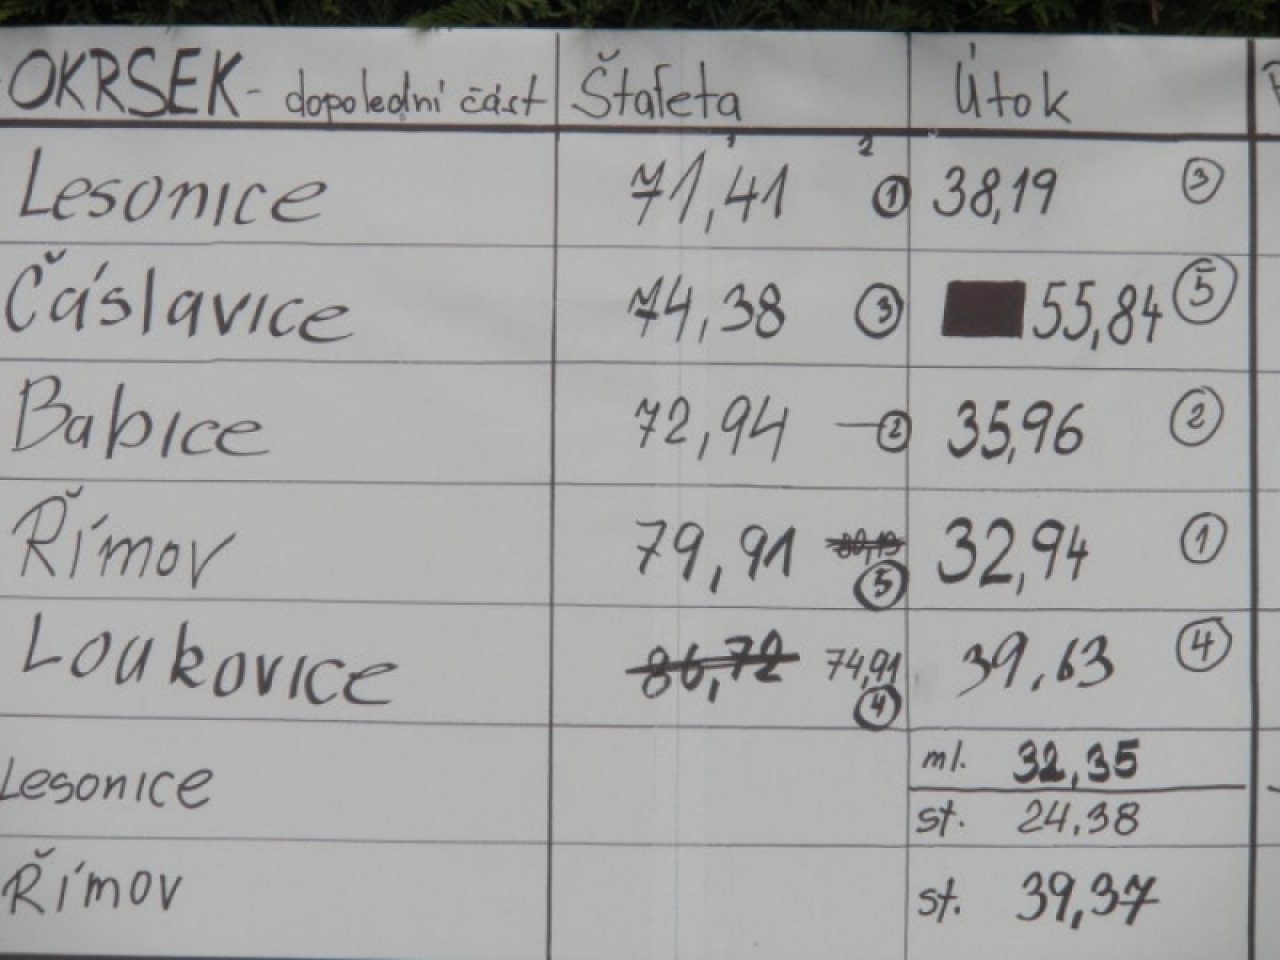 OKRSEK - dopolední část Štafeta Útok
Lesonice 71,41 1 38,19 3
Čáslavice 74,38 3 55,84 5
Babice 72,94 2 35,96 2
Římov 79,91 5 32,94 1
Loukovice 86,72 74,91 4 39.63 4
Lesonice ml. 32,35
st. 24.38
Římov st. 39,37